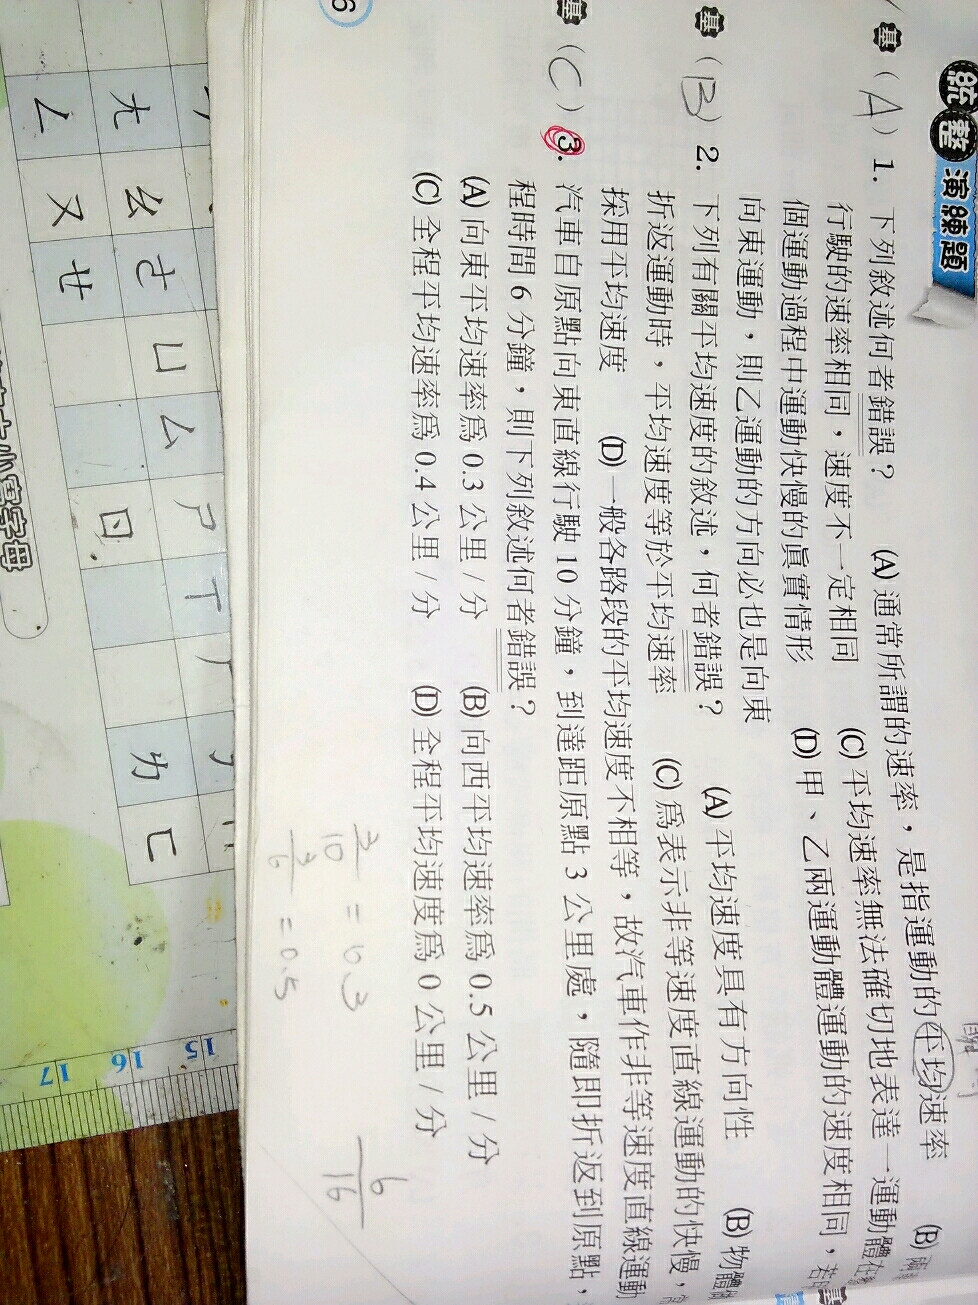 統整演練題
基 ( A ) 1. 下列敘述何者錯誤? (A) 通常所謂的速率,是指運動的平均速率 (B)
行駛的速率相同,速度不一定相同 (C) 平均速率無法確切地表達一運動體在
個運動過程中運動快慢的真實情形 (D) 甲、乙兩運動體運動的速度相同,若
向東運動,則乙運動的方向必也是向東
基 ( B ) 2. 下列有關平均速度的敘述,何者錯誤? (A) 平均速度具有方向性 (B) 物體
折返運動時,平均速度等於平均速率 (C) 為表示非等速度直線運動的快慢,
採用平均速度 (D) 一般各路段的平均速度不相等,故汽車作非等速度直線運動
基 ( C ) 3. 汽車自原點向東直線行駛 10 分鐘,到達距原點 3 公里處,隨即折返到原點,
程時間 6 分鐘,則下列敘述何者錯誤?
(A) 向東平均速率為 0.3 公里 / 分 (B) 向西平均速率為 0.5 公里 / 分
(C) 全程平均速率為 0.4 公里 / 分 (D) 全程平均速度為 0 公里 / 分
3/10 = 0.3
3/6 = 0.5
6/16
6
ㄤ ㄠ ㄜ ㄩ ㄙ ㄕ ㄒ
ㄥ ㄡ ㄝ ㄖ ㄌ ㄈ
15 16 17
大小寫字母